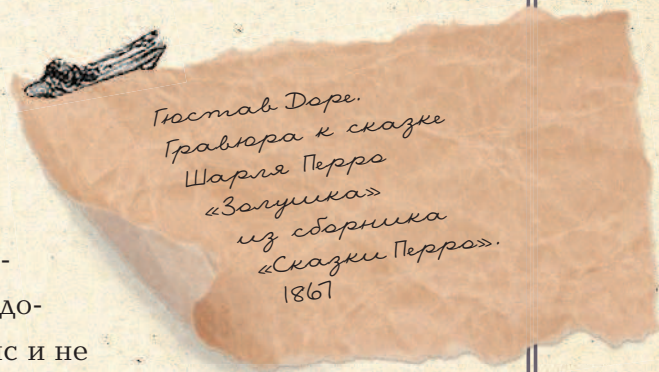 Гюстав Доре.
Гравюра к сказке
Шарля Перро
«Золушка»
из сборника
«Сказки Перро».
1867
-
до-
с и не